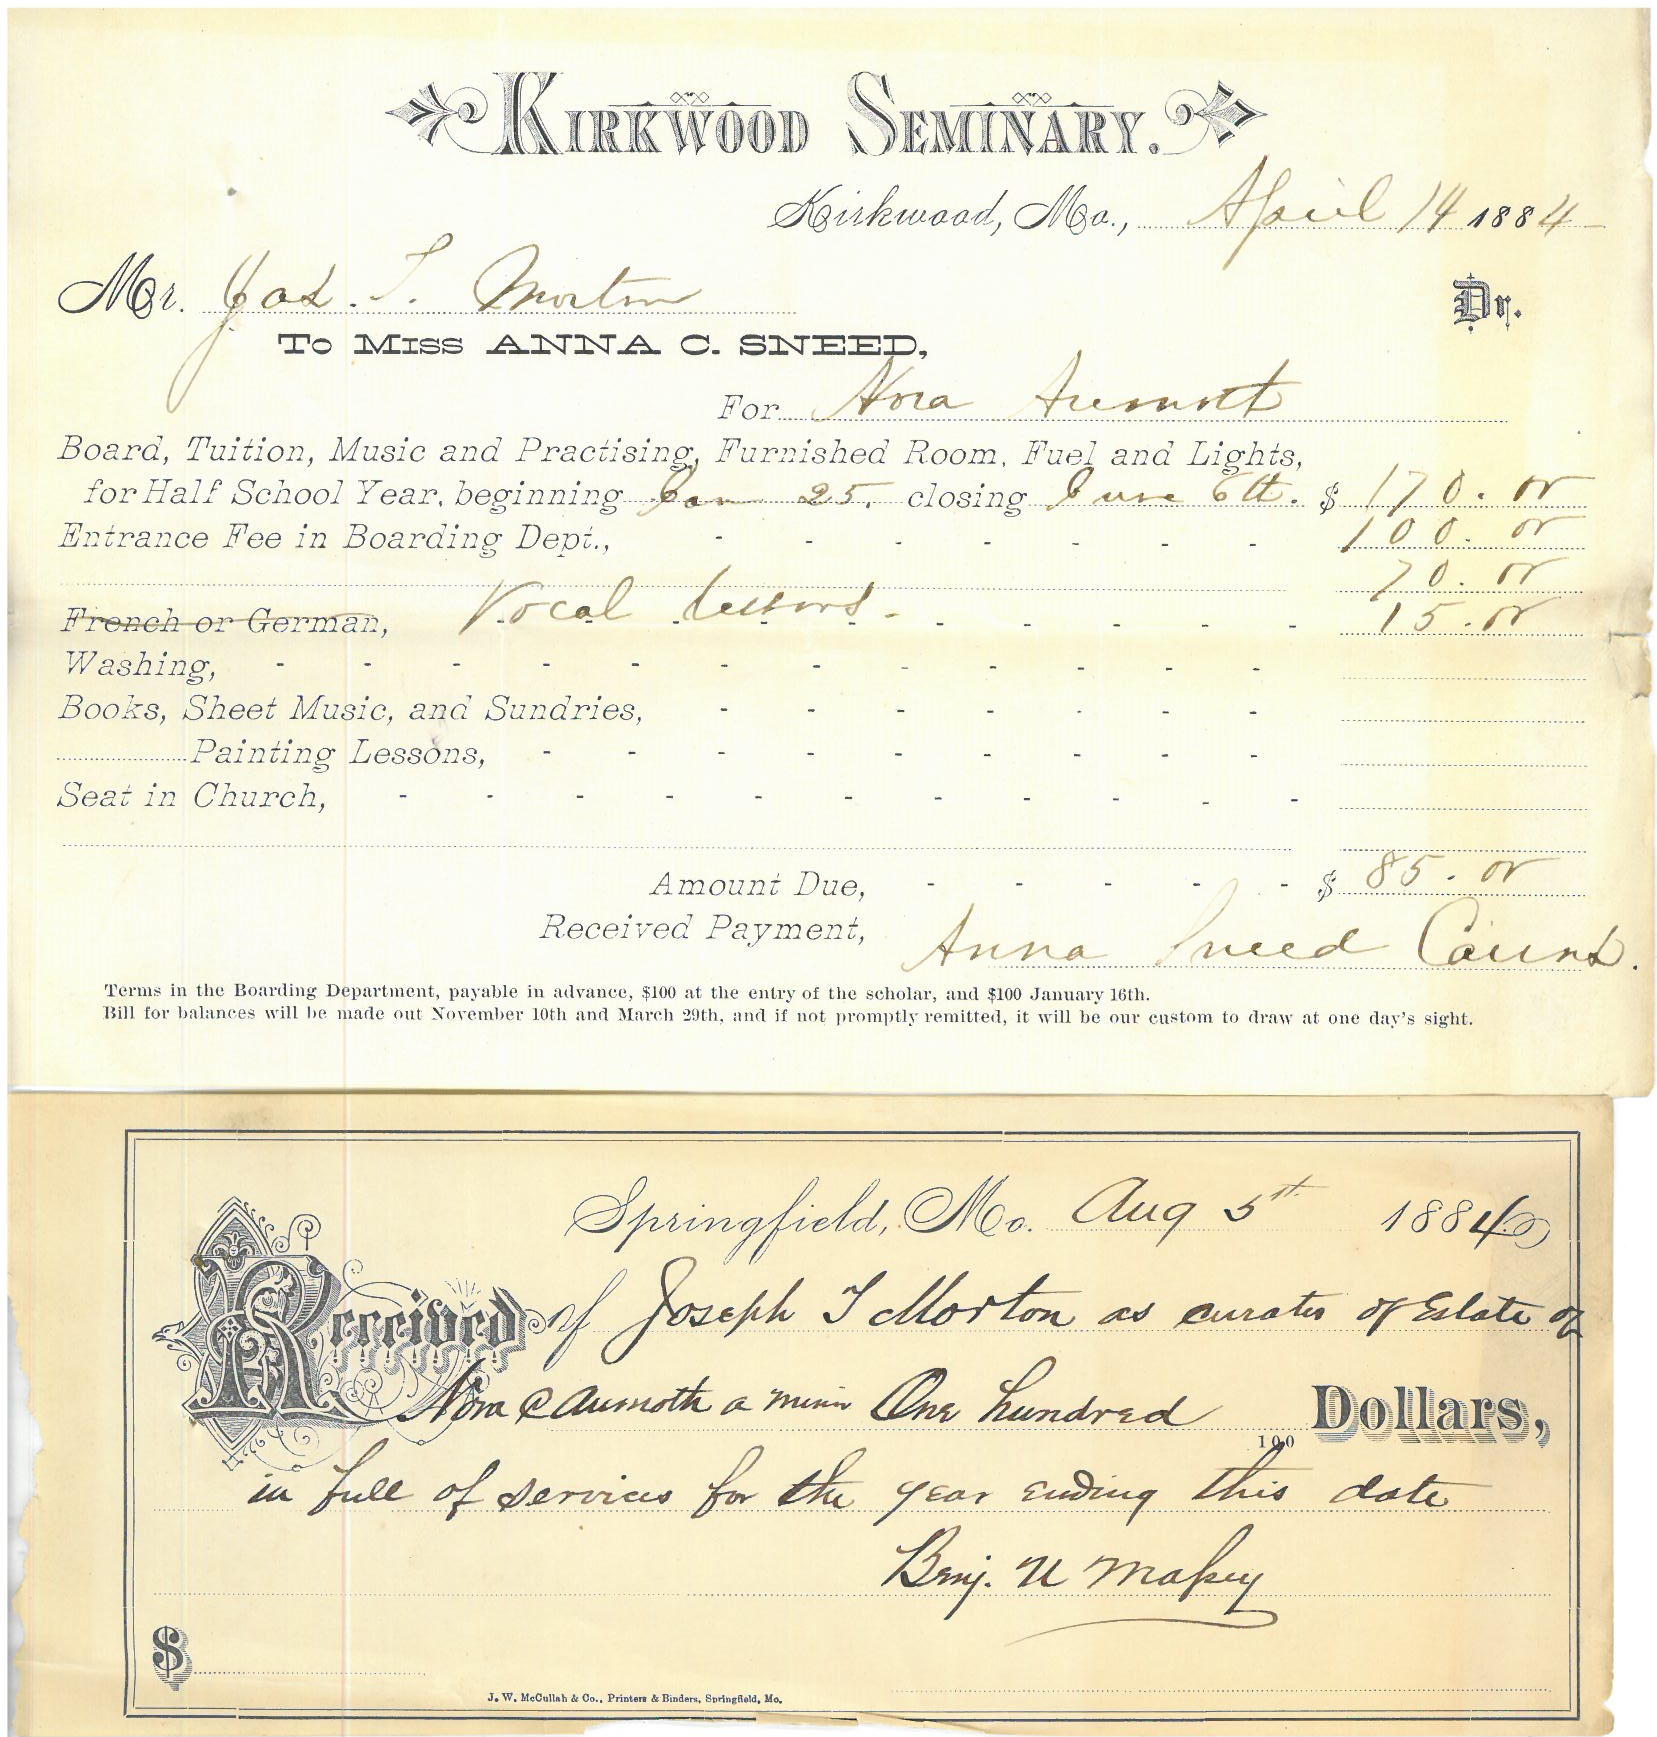 KIRKWOOD SEMINARY.
Kirkwood, Mo., April 14 1884
Mr. Jos. T. Morton Dr.
TO MISS ANNA C. SNEED,
For Nora Aumoth
Board, Tuition, Music and Practising, Furnished Room, Fuel and Lights,
for Half School Year, beginning Jan 25. closing June 6th. $ 170.00
Entrance Fee in Boarding Dept., 100.00
70.00
French or German, Vocal lessons. 15.00
Washing,
Books, Sheet Music, and Sundries,
Painting Lessons,
Seat in Church,
Amount Due, $ 85.00
Received Payment, Anna Sneed Cairns.
Terms in the Boarding Department, payable in advance, $100 at the entry of the scholar, and $100 January 16th.
Bill for balances will be made out November 10th and March 29th, and if not promptly remitted, it will be our custom to draw at one day's sight.
Springfield, Mo. Aug 5st 1884
Received of Joseph T Morton as curator of Estate of
Nora C Aumoth a minor One hundred 100 Dollars,
in full of services for the year ending this date
Benj. U Massey
$
J. W. McCullah & Co., Printers & Binders, Springfield, Mo.